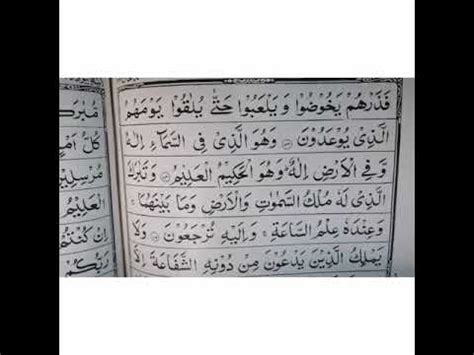 فَذَرْهُمْ يَخُوْضُوْا وَيَلْعَبُوْا حَتّٰى يُلٰقُوْا يَوْمَهُمُ
الَّذِىْ يُوْعَدُوْنَ ۝ وَهُوَ الَّذِىْ فِى السَّمَآءِ اِلٰهٌ
وَّفِى الْاَرْضِ اِلٰهٌ ؕ وَهُوَ الْحَكِيْمُ الْعَلِيْمُ ۝ وَتَبٰرَكَ
الَّذِىْ لَهٗ مُلْكُ السَّمٰوٰتِ وَالْاَرْضِ وَمَا بَيْنَهُمَا ۚ
وَعِنْدَهٗ عِلْمُ السَّاعَةِ ۚ وَاِلَيْهِ تُرْجَعُوْنَ ۝ وَلَا
يَمْلِكُ الَّذِيْنَ يَدْعُوْنَ مِنْ دُوْنِهِ الشَّفَاعَةَ اِلَّا
مُبٰرَكَ
كُلُّ
مُرْسِلِيْنَ
الْعَلِيْمُ
اِنْ كُنْتُمْ
رَبُّكُمْ